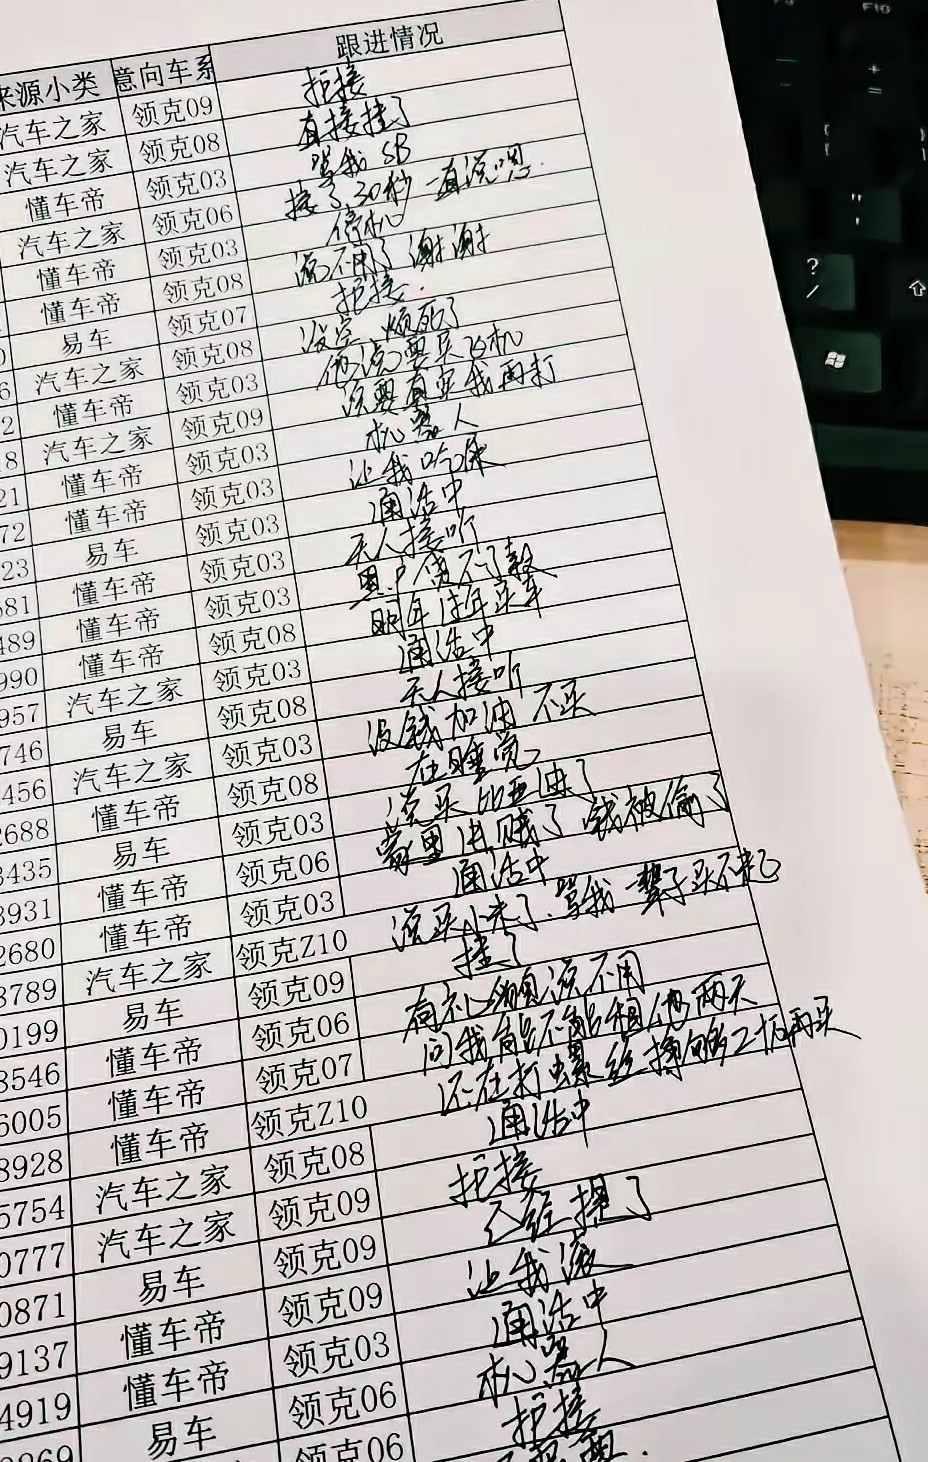 来源小类 意向车系 跟进情况
汽车之家 领克09 拒接
汽车之家 领克08 直接挂了
懂车帝 领克03 骂我SB
汽车之家 领克06 接了30秒 一直说嗯.
懂车帝 领克03 停机
懂车帝 领克08 说不用了 谢谢
易车 领克07 拒接.
汽车之家 领克08 没空 烦死了
懂车帝 领克03 他说要买飞机
汽车之家 领克09 说要真买我再打
懂车帝 领克03 机器人
懂车帝 领克03 让我吃屎
易车 领克03 通话中
懂车帝 领克03 无人接听
懂车帝 领克03 用户 不了
懂车帝 领克08 明年过年买车
汽车之家 领克03 通话中
易车 领克08 无人接听
汽车之家 领克03 没钱加油 不买
懂车帝 领克08 在睡觉
易车 领克03 说买比亚迪了
懂车帝 领克06 家里进贼了 钱被偷了
懂车帝 领克03 通话中
汽车之家 领克Z10 说买小米了.骂我一辈子买不起
易车 领克09 挂了
懂车帝 领克06 有礼貌 说不用
懂车帝 领克07 问我能不能租他两天
懂车帝 领克Z10 还在打螺丝 攒够了 再买
汽车之家 领克08 通话中
汽车之家 领克09 拒接
易车 领克09 已经提了
懂车帝 领克09 让我滚
懂车帝 领克03 通话中
易车 领克06 机器人
领克06 拒接
2
8
21
72
23
681
489
990
957
746
456
2688
3435
3931
2680
8789
0199
8546
6005
8928
5754
0777
0871
9137
4919
F10
?
/